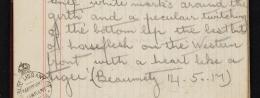 only white marks around the
girth and a peculair twitching
of the bottom lip the best bit
of horseflesh on the Western
front with a heart like a
tiger" (Beaumetz 14.5.17)